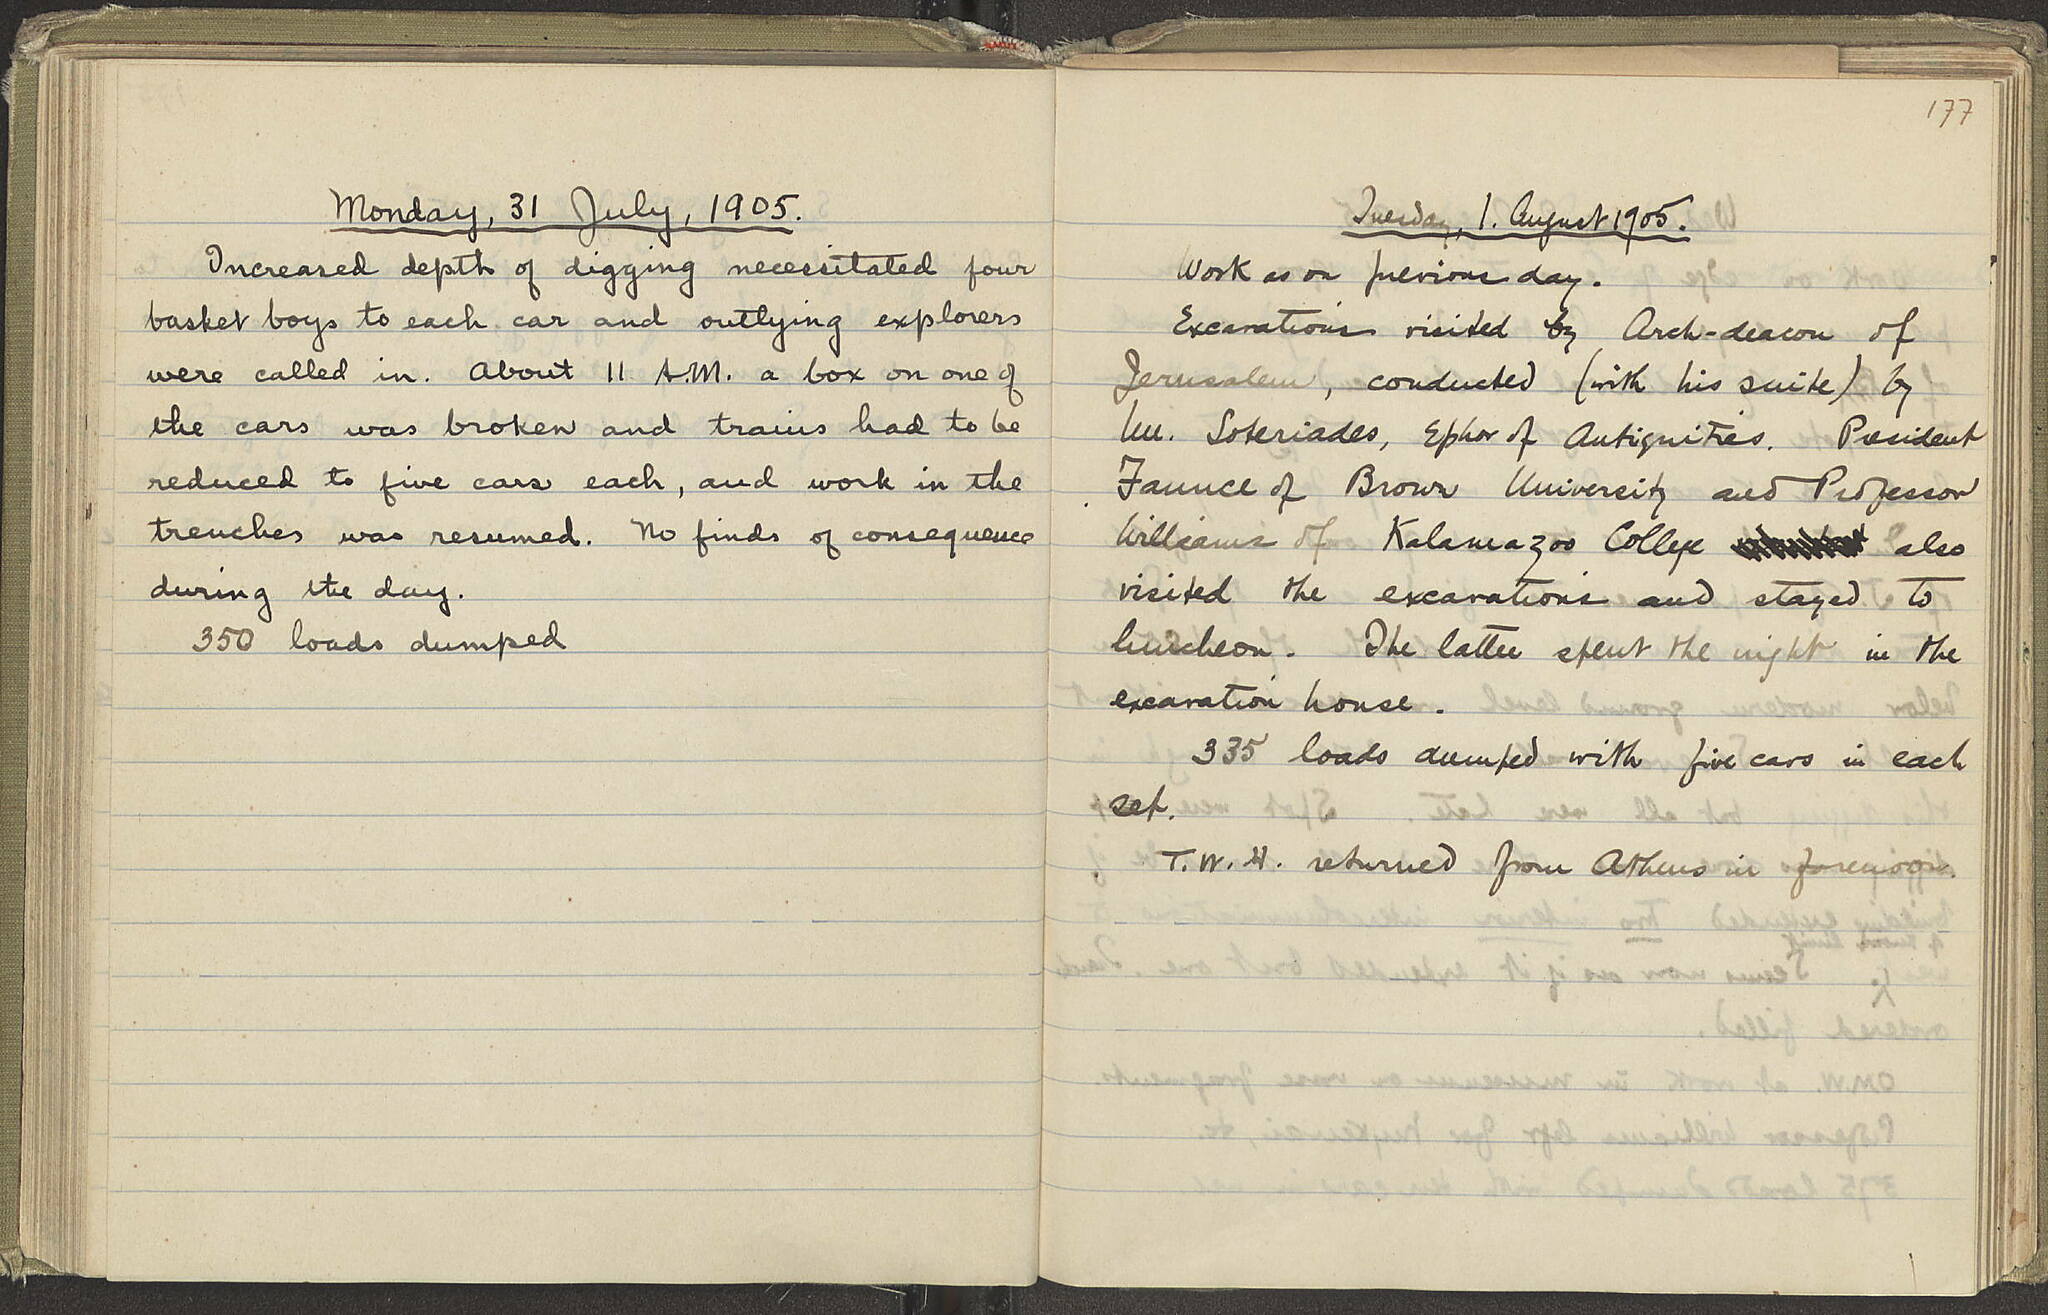 Monday, 31 July, 1905.
Increased depth of digging necessitated four
basket boys to each car and outlying explorers
were called in. About 11 A.M. a box on one of
the cars was broken and trains had to be
reduced to five cars each, and work in the
trenches was resumed. No finds of consequence
during the day.
350 loads dumped
177
Tuesday, 1. August 1905.
Work as on previous day.
Excavations visited by Arch-deacon of
Jerusalem, conducted (with his suite) by
Mr. Soteriades, Ephor of Antiquities. President
Faunce of Brown University and Professor
Williams of Kalamazoo College also
visited the excavations and stayed to
luncheon. The latter spent the night in the
excavation house.
335 loads dumped with five cars in each
set.
T.W.H. returned from Athens in forenoon.